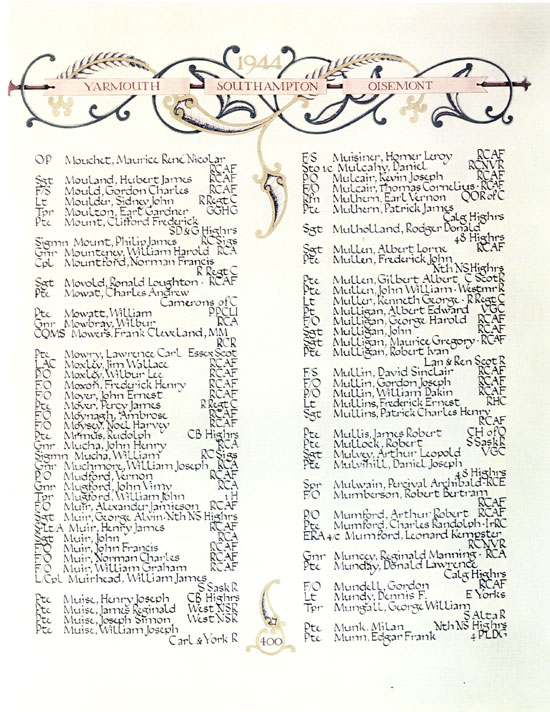 1944
YARMOUTH SOUTHAMPTON OISEMONT
OP Mouchet, Maurice Rene Nicolar
RCAF
Sgt Mouland, Hubert James RCAF
F/S Mould, Gordon Charles RCAF
Lt Moulder, Sidney John R Regt C
Tpr Moulton, Earl Gardner GGHG
Pte Mount, Clifford Frederick
SD&G Highrs
Sigmn Mount, Philip James RCSigs
Gnr Mounteney, William Harold RCA
Cpl Mountford, Norman Francis
R Regt C
Sgt Movold, Ronald Loughton · RCAF
Pte Mowat, Charles Andrew
Camerons of C
Pte Mowatt, William PPCLI
Gnr Mowbray, Wilbur RCA
CQMS Mowers, Frank Cleveland, MM
RCR
Pte Mowry, Lawrence Carl Essex Scot
LAC Moxley, Jim Wallace RCAF
P/O Moxley, Wilbur Lee RCAF
F/O Moxon, Frederick Henry RCAF
F/O Moyer, John Ernest RCAF
Pte Moyer, Percy James R Regt C
F/O Moynagh, Ambrose RCAF
F/O Moysey, Noel Harvey RCAF
Pte Mrmus, Rudolph CB Highrs
Gnr Mucha, John Henry RCA
Sigmn Mucha, William RC Sigs
Gnr Muchmore, William Joseph RCA
P/O Mudford, Vernon RCAF
Gnr Mugford, John Vimy RCA
Tpr Mugford, William John 1 H
F/O Muir, Alexander Jamieson RCAF
Sgt Muir, George Alvin · Nth NS Highrs
S/Lt.A Muir, Henry James
Sgt Muir, John RCA
F/O Muir, John Francis RCAF
F/O Muir, Norman Charles RCAF
F/O Muir, William Graham RCAF
L/Cpl Muirhead, William James
S Sask R
Pte Muise, Henry Joseph CB Highrs
Pte Muise, James Reginald West NSR
Pte Muise, Joseph Simon West NSR
Pte Muise, William Joseph
Carl & York R
F/S Muisiner, Homer Leroy RCAF
Sto 1c Mulcahy, Daniel RCNVR
F/O Mulcair, Kevin Joseph RCAF
F/O Mulcair, Thomas Cornelius · RCAF
Rfn Mulhern, Earl Vernon QOR of C
Pte Mulhern, Patrick James
Calg Highrs
Sgt Mulholland, Rodger Donald
48 Highrs
Sgt Mullen, Albert Lorne RCAF
Pte Mullen, Frederick John
Nth NS Highrs
Pte Mullen, Gilbert Albert C Scot R
Pte Mullen, John William · Westmr R
Lt Muller, Kenneth George · R Regt C
Pt Mulligan, Albert Edward VGC
F/O Mulligan, George Harold RCAF
Sgt Mulligan, John RCAF
Sgt Mulligan, Maurice Gregory · RCAF
Pte Mulligan, Robert Ivan
Lan & Ren Scot R
F/S Mullin, David Sinclair RCAF
F/O Mullin, Gordon Joseph RCAF
P/O Mullin, William Dakin RCAF
Lt Mullins, Frederick Ernest RHC
Sgt Mullins, Patrick Charles Henry
RCAF
Pte Mullis, James Robert CH of O
Pte Mullock, Robert S Sask R
Sgt Mulvey, Arthur Leopold VGC
Pte Mulvihill, Daniel Joseph
48 Highrs
Spr Mulwain, Percival Archibald · RCE
F/O Mumberson, Robert Bertram
RCAF
P/O Mumford, Arthur Robert RCAF
Pte Mumford, Charles Randolph · Ir RC
ERA 4/c Mumford, Leonard Kempster
RCNVR
Gnr Muncey, Reginald Manning · RCA
Pte Munday, Donald Lawrence
Calg Highrs
F/O Mundell, Gordon RCAF
Lt Mundy, Dennis F. E Yorks
Tpr Mungall, George William
S Alta R
Pte Munk, Milan Nth NS Highrs
Pte Munn, Edgar Frank 4 PLDG
400